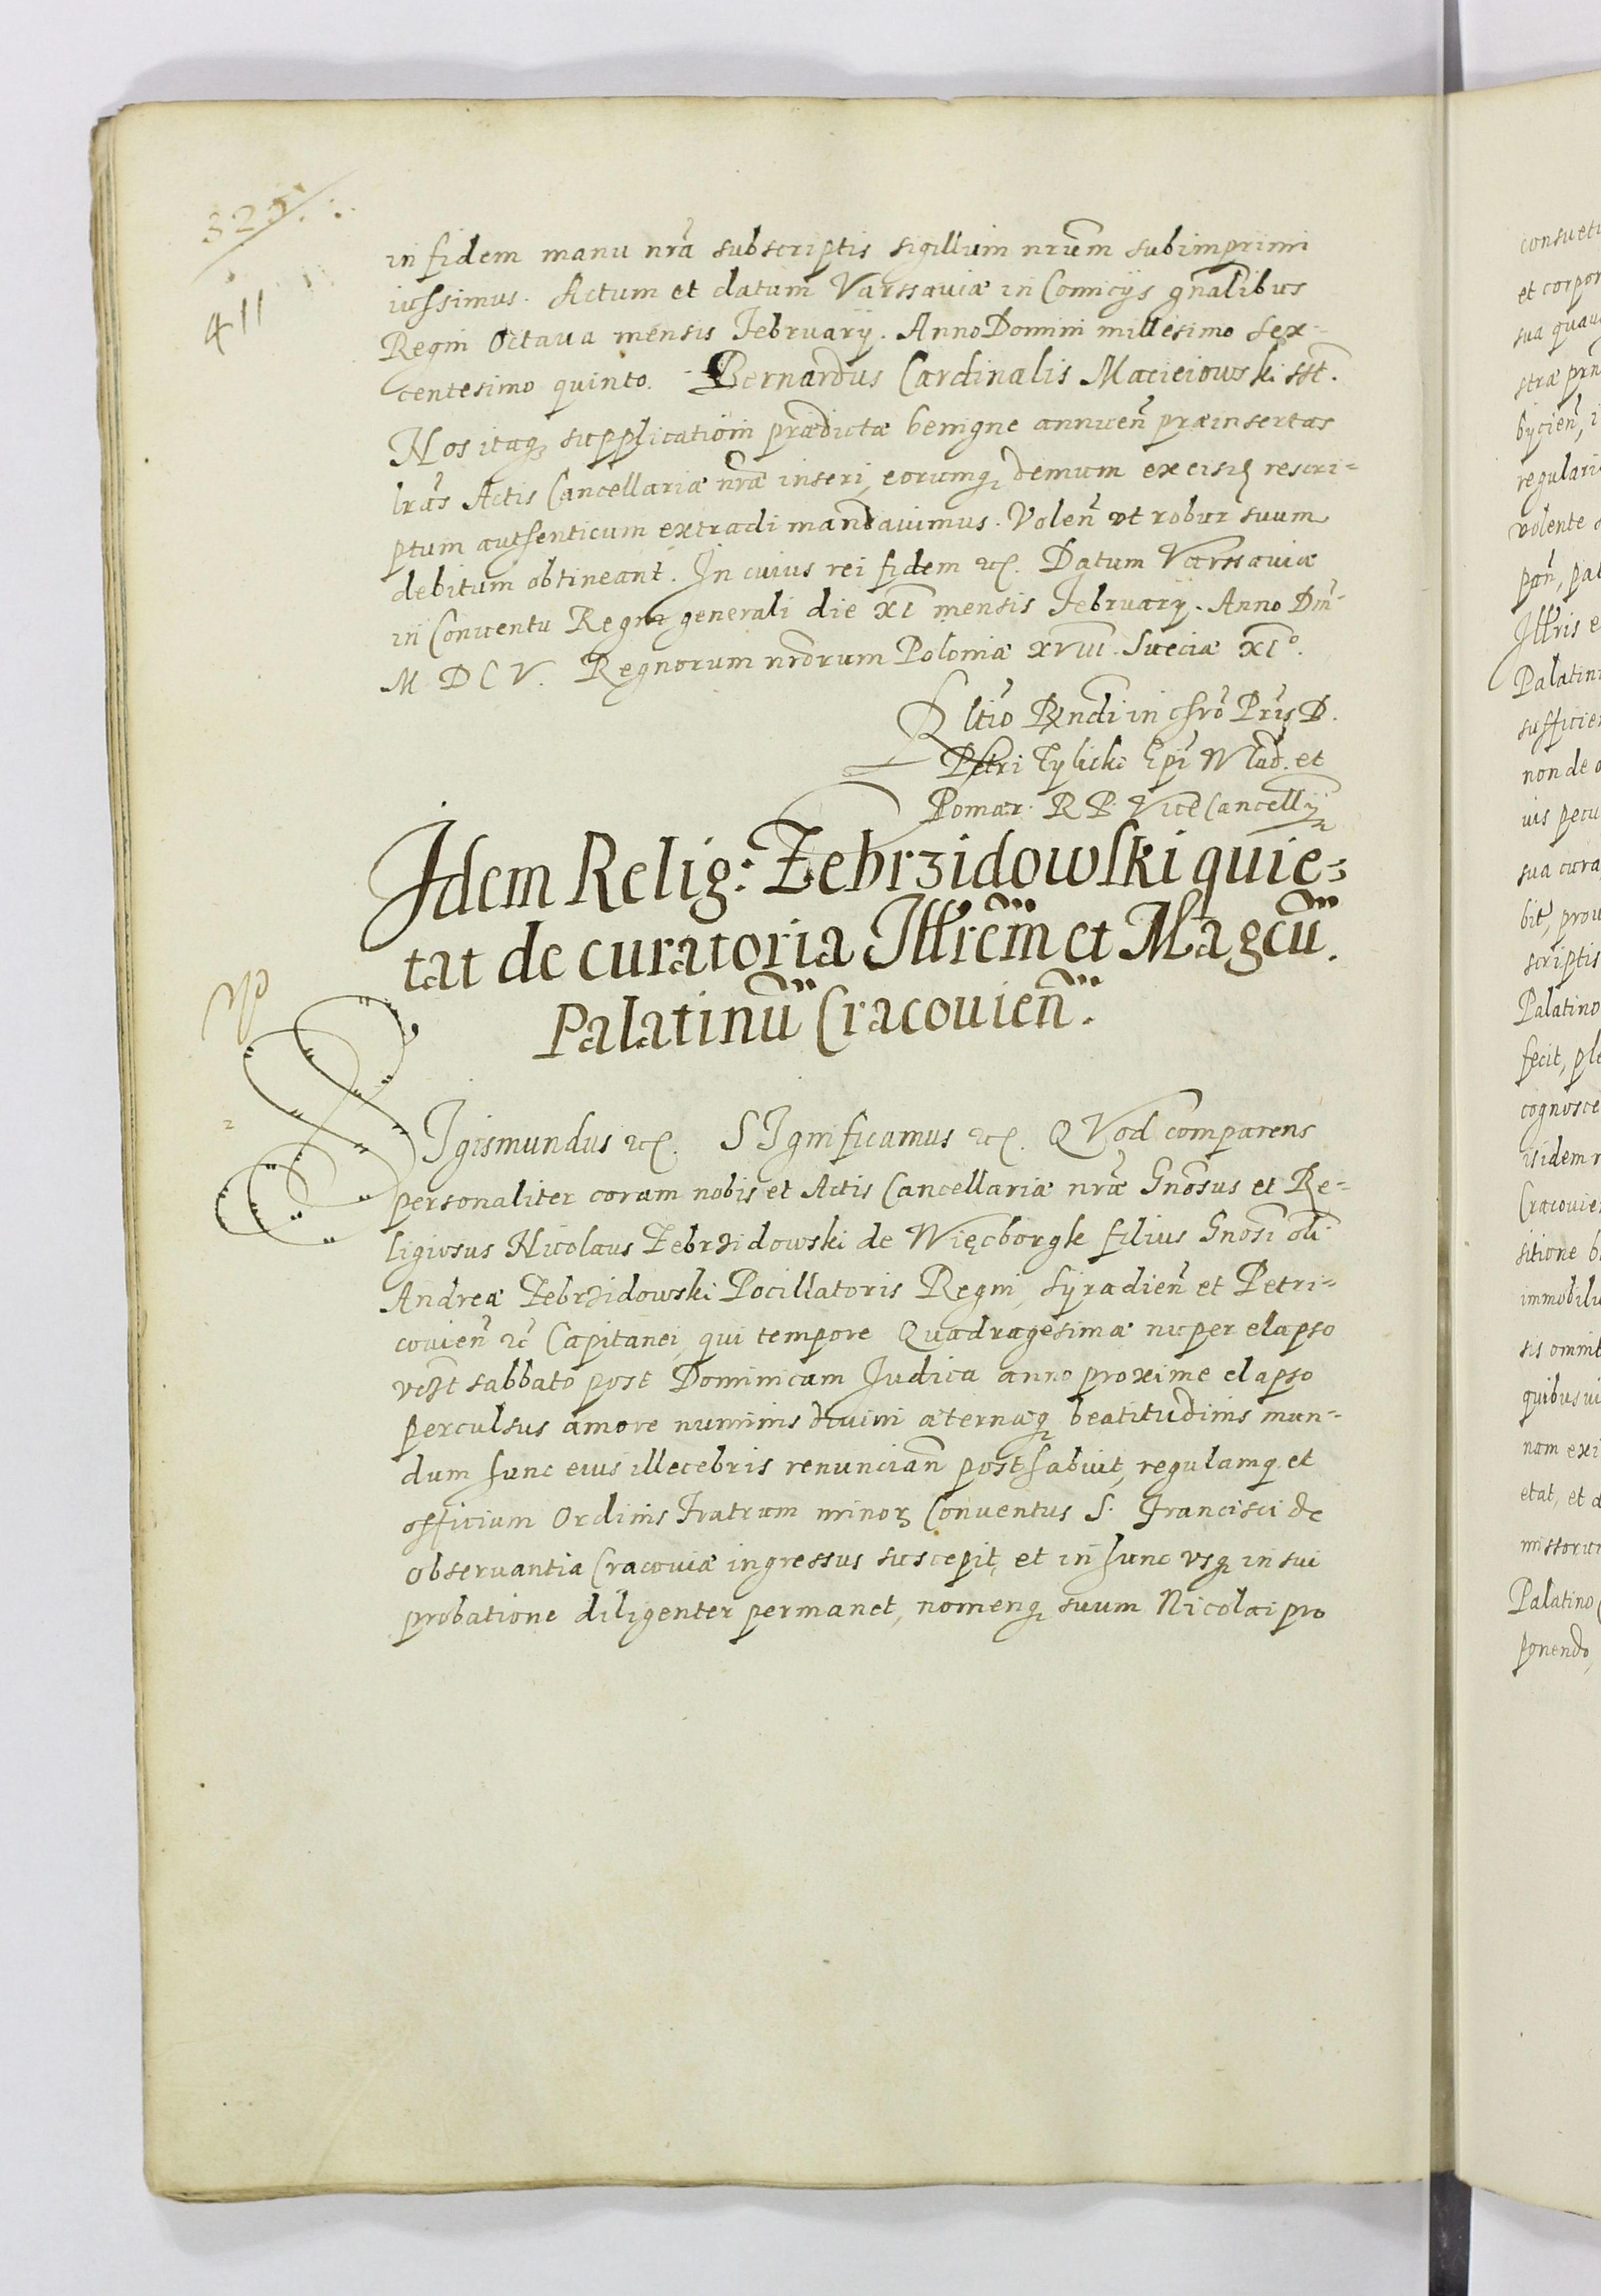 325
411
in fidem manu nrã subscriptis sigillum nrũm subimprimi
iussimus. Actum et datum Varssauiæ in Comicijs gñalibus
Regni Octaua mensis February. Anno Domini millesimo sex-
centesimo quinto. Bernardus Cardinalis Macieiowski sst.
Nos itaq; supplicatiõni prædictæ benigne annuen̄ præinsertas
lrãs Actis Cancellariæ nrãe inseri, eorumq; demum ex eisd rescri=
ptum authenticum extradi mandauimus. Volen̄ vt robur suum
debitum obtineant. In cuius rei fidem etc. Datum Varssauiæ
in Conuentu Regni generali die XI mensis February. Anno Dni-
M D C V. Regnorum nrõrum Poloniæ XVIII. Sueciæ XI°.
Rltio Rxndi in chro Pris D.
Petri Tylicki Epi Wlad. et
Pomær. R P. Vice Cancellij
Idem Relig: Zebrzidowski quie=
tat de curatoria Illrem̃ et Magcũ.
Palatinũ Cracouien̄.
SIgismundus etc. SIgnificamus etc. QVod comparens
personaliter coram nobis et Actis Cancellariæ nrãe Gnõsus et Re=
ligiosus Nicolaus Zebrzidowski de Więcborgk filius Gnõsi oli
Andreæ Zebrzidowski Pocillatoris Regni, Syradien̄ et Petri=
couien̄ etc Capitanei, qui tempore Quadragesimæ nuper elapso
vczt sabbato post Dominicam Judica anno proxime elapso
perculsus amore numinis diuini æternæq; beatitudinis mun=
dum hunc eius illecebris renuncian̄ posthabuit, regulamq; et
officium Ordinis Fratrum minoꝝ Conuentus S. Francisci de
obseruantia Cracouiæ ingressus suscepit, et in hunc vsq; in sui
probatione diligenter permanet, nomenq; suum Nicolai pro
consueti
et corpor
sua quau
stræ prn
bycien̄, i
regulari
volente
pan̄, pal
Illris e
Palatini
sufficie
non de
uis pecu
sua cura
bit, prou
scriptis
Palatino
fecit, ple
cognosce
isidem
Cracouie
sitione b
immobiliu
sis omnib
quibusui
nam exi
etat, et
missoru
Palatino
ponendo,